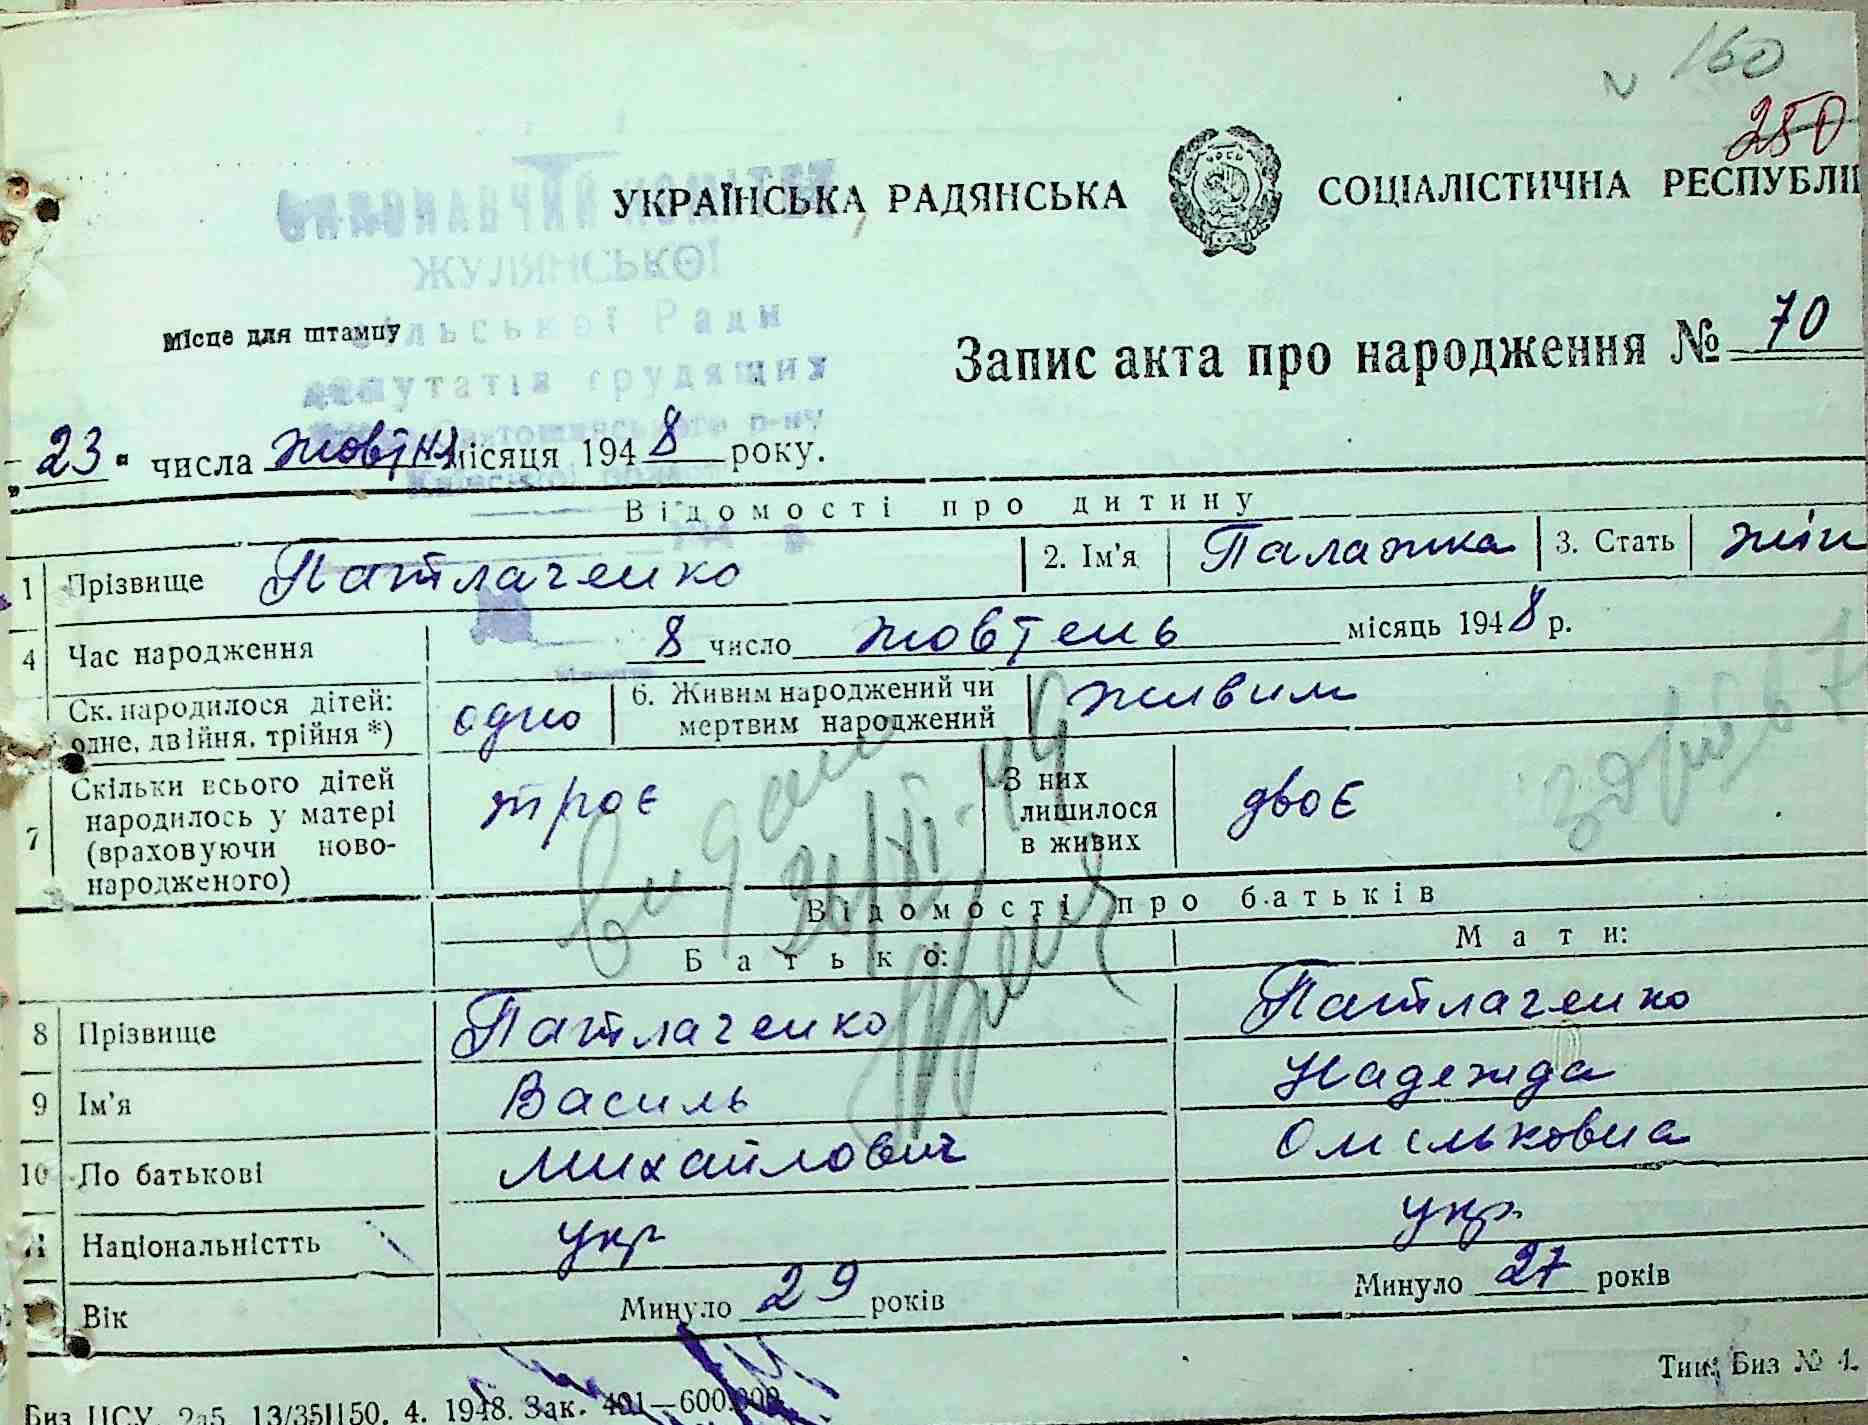 160
250
УКРАЇНСЬКА РАДЯНСЬКА СОЦІАЛІСТИЧНА РЕСПУБЛІ
ЖУЛЯНСЬКОЇ
сільської Ради
депутатів трудящих
Київської області
Місце для штампу
Запис акта про народження № 70
„23" числа жовтня місяця 1948 року.
Відомості про дитину
1 Прізвище Патлаченко 2. Ім'я Палажка 3. Стать жін
4 Час народження 8 число жовтень місяць 1948 р.
Ск. народилося дітей: одне, двійня, трійня *) одно 6. Живим народжений чи мертвим народжений живим
7 Скільки всього дітей народилось у матері (враховуючи ново-народженого) троє З них лишилося в живих двоє
Відомості про батьків
Батько: Мати:
8 Прізвище Патлаченко Патлаченко
9 Ім'я Василь Надежда
10 По батькові Михайлович Омельковна
11 Національністть укр укр.
Вік Минуло 29 років Минуло 27 років
Биз ЦСУ. 13/351150. 4. 1948. Зак. 491—600.000
Тип. Биз № 1.